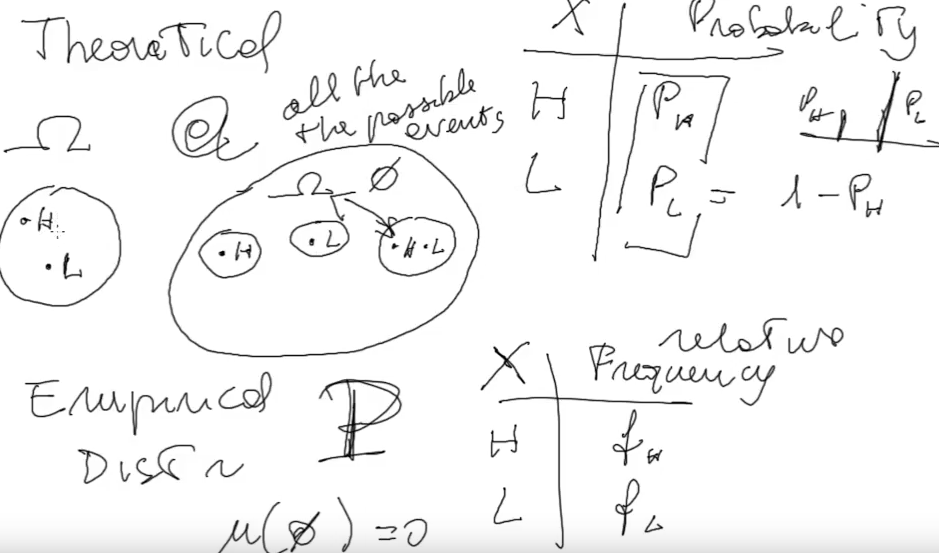 Theoretical
Ω
a
all the
the possible
events
·H
·L
Ω ∅
·H
·L
·H ·L
X Probability
H P_H
L P_L = 1 - P_H
P_H P_L
Empirical
Distr
P
μ(∅) = 0
X relative
Frequency
H f_H
L f_L